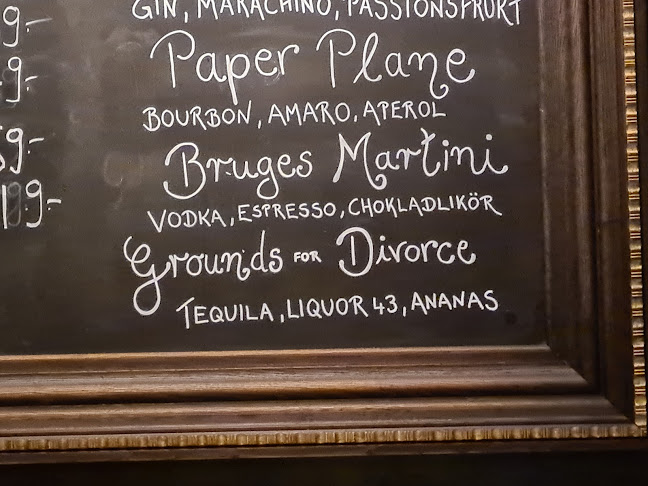 GIN, MARACHINO, PASSIONSFRUKT
9:-
Paper Plane
9:-
BOURBON, AMARO, APEROL
9:-
Bruges Martini
19:-
VODKA, ESPRESSO, CHOKLADLIKÖR
Grounds FOR Divorce
TEQUILA, LIQUOR 43, ANANAS